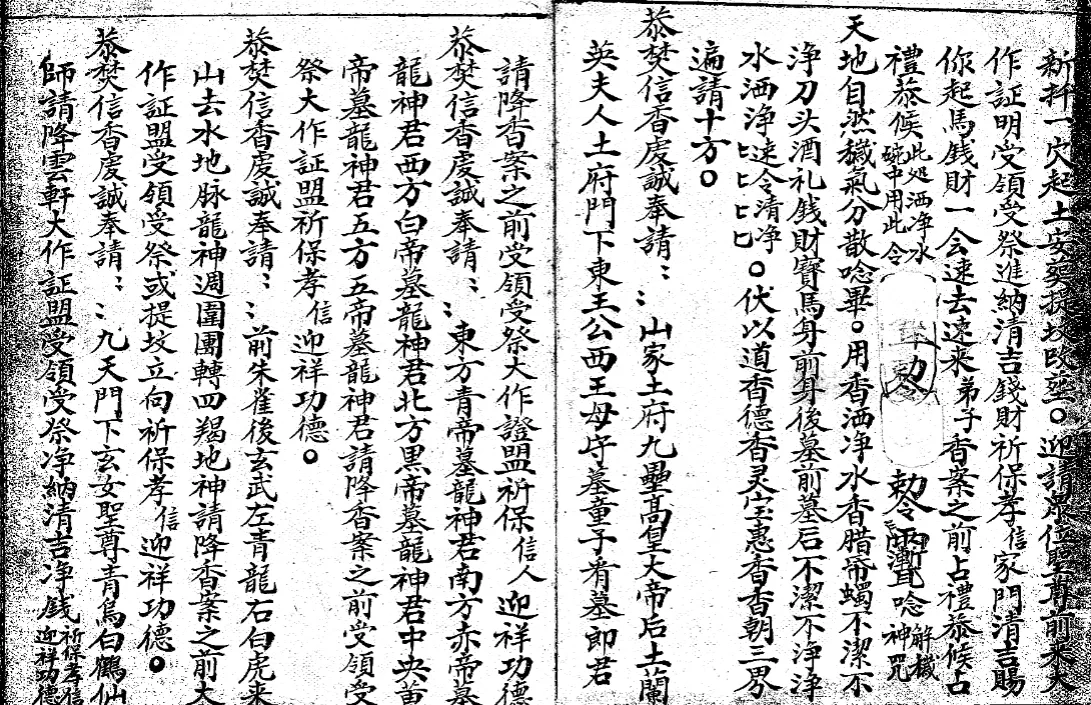 新扦一穴起土安葬提坟改塟。迎請眾位聖尊前来大
作証明受領受祭進納清吉錢財祈保孝信家門清吉賜
你起馬錢財一会速去速来弟子香案之前占禮恭候占
禮恭候此处洒净水碗中用此令 勅令 唸解穢神咒
天地自然穢氣分散唸畢。用香洒净水香腊帋蠋不潔不
浄刀头酒礼銭財寳馬身前身後墓前墓后不潔不浄浄
水洒浄速令清浄匕匕匕匕。伏以道香德香灵宝惠香香朝三界
遍請十方。
恭焚信香虔誠奉請：：山家土府九壘高皇大帝后土蘭
英夫人土府門下東王公西王母守墓童子看墓郎君
請降香案之前受領受祭大作證盟祈保信人迎祥功德
恭焚信香虔誠奉請：：東方青帝墓龍神君南方赤帝墓
龍神君西方白帝墓龍神君北方黒帝墓龍神君中央黄
帝墓龍神君五方五帝墓龍神君請降香案之前受領受
祭大作証盟祈保孝信迎祥功德。
恭焚信香虔誠奉請：：前朱雀後玄武左青龍右白虎来
山去水地脉龍神週圍團轉四羯地神請降香案之前大
作証盟受領受祭或提坟立向祈保孝信迎祥功德。
恭焚信香虔誠奉請：：九天門下玄女聖尊青鳥白鶴仙
師請降雲軒大作証盟受領受祭净納清吉净銭祈保孝信迎祥功德